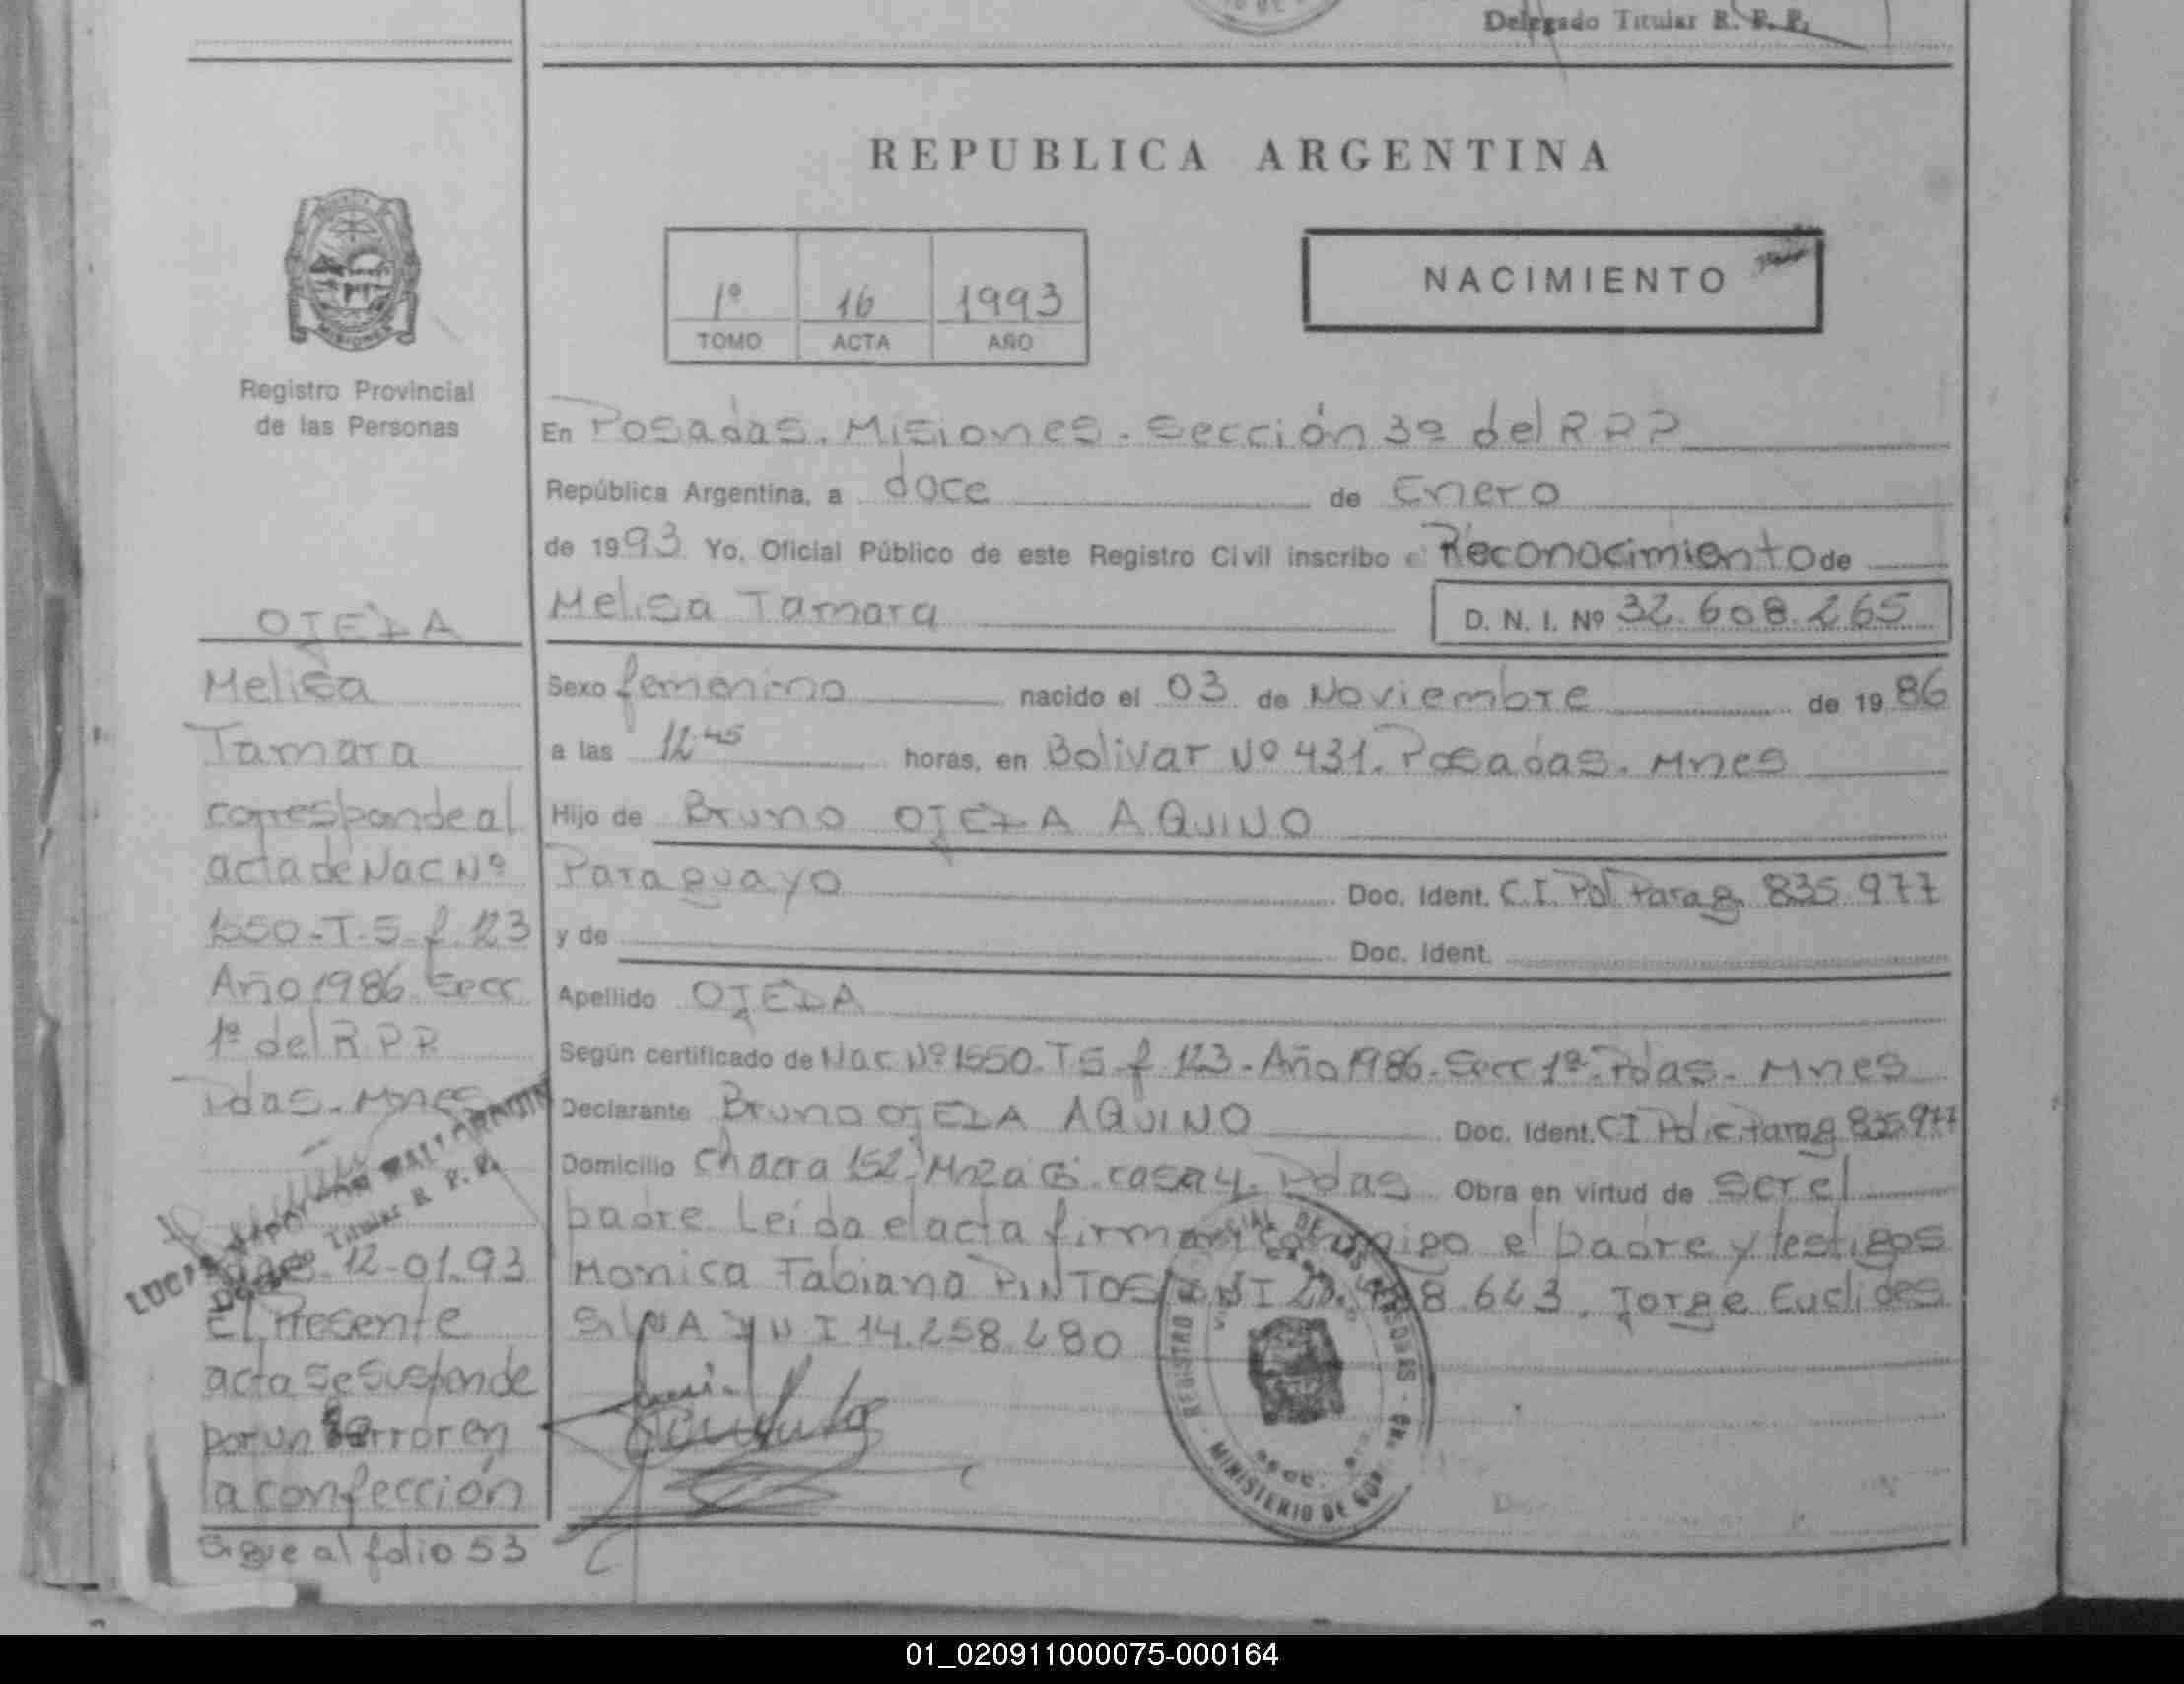 Delegado Titular R. P. P.
REPUBLICA ARGENTINA
1º 16 1993
TOMO ACTA AÑO
NACIMIENTO
Registro Provincial
de las Personas
En Posadas. Misiones. Sección 3º del R P P
República Argentina, a doce de Enero
de 1993 Yo, Oficial Público de este Registro Civil inscribo e Reconocimiento de
Melisa Tamara D. N. I. Nº 32.608.265
Sexo femenino nacido el 03 de Noviembre de 1986
a las 12 45 horas, en Bolivar Nº 431. Posadas. Mnes
Hijo de Bruno OJEDA AQUINO
Paraguayo Doc. Ident. C.I. Pol Parag. 835.977
y de Doc. Ident.
Apellido OJEDA
Según certificado de Nac Nº 1550. T 5 f 123 - Año 1986. Secc 1ª. Pdas. Mnes
Declarante Bruno OJEDA AQUINO Doc. Ident. C I Polic. Parag 835.977
Domicilio Chacra 152. Mza G. casa 4. Pdas Obra en virtud de ser el
padre. Leida el acta firman conmigo el padre y testigos
Monica Fabiana PINTOS DNI 8.643. Jorge Euclides
SILVA DNI 14.258.280
OJEDA
Melisa
Tamara
corresponde al
acta de Nac Nº
1550-T-5-f. 123
Año 1986. Secc
1ª del R.P.P.
Pdas. Mnes
Titular R. P. P.
12-01.93
El Presente
acta se suspende
por un error en
la confección
Sigue al folio 53
REGISTRO DE LAS PERSONAS
MINISTERIO DE GOB
01_020911000075-000164